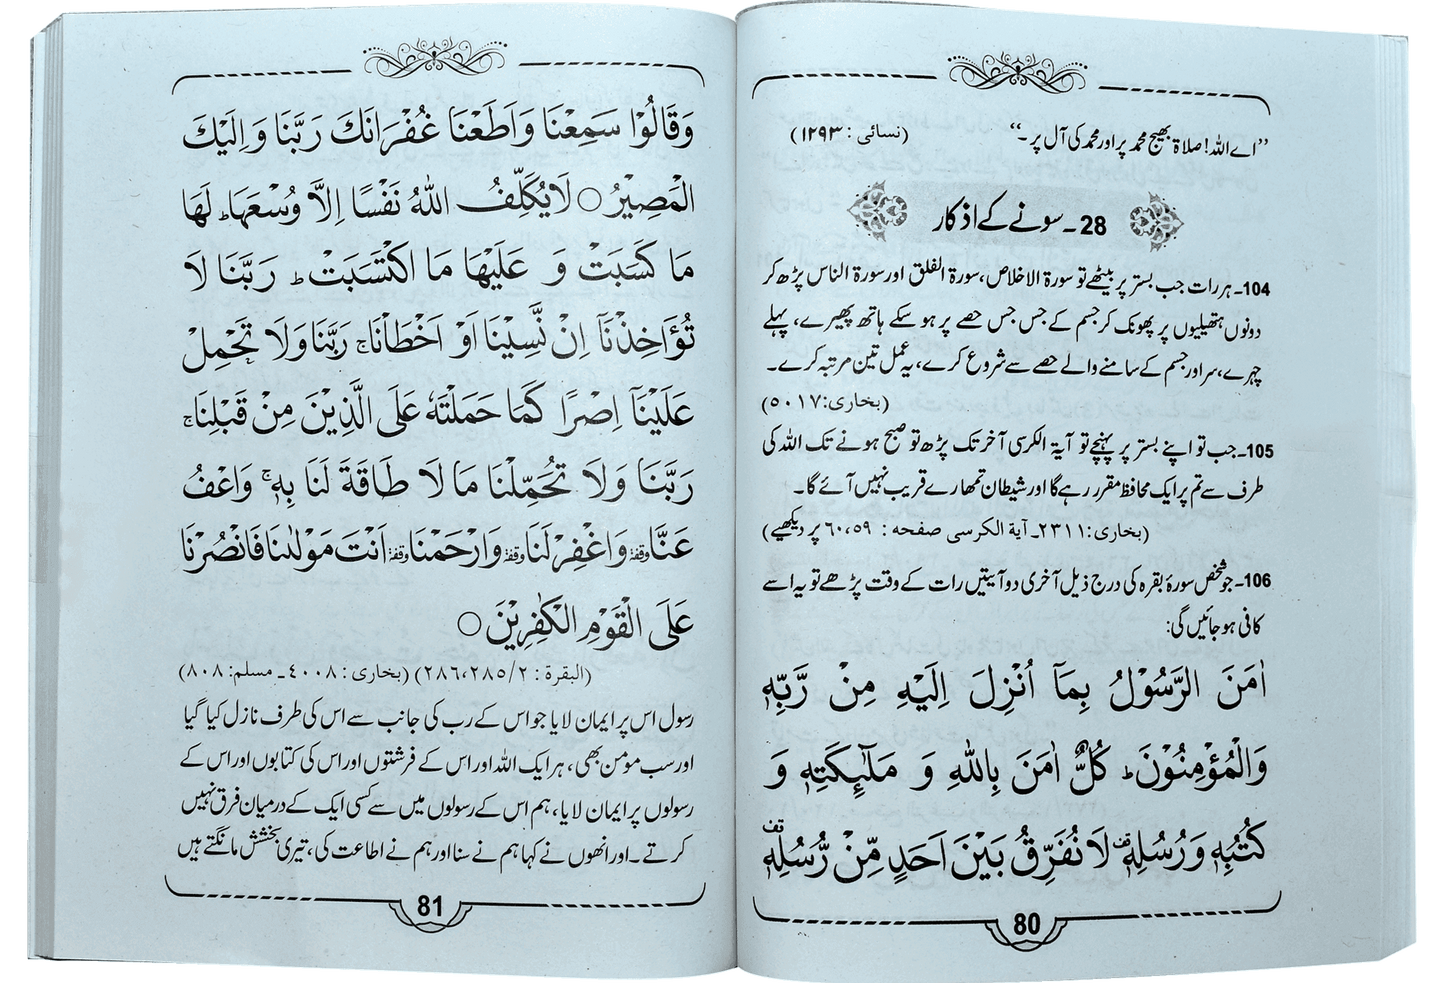 ”اے اللہ! صلاۃ بھیج محمد پر اور محمد کی آل پر۔“ (نسائی : ۱۲۹۳)
28۔ سونے کے اذکار
104۔ ہر رات جب بستر پر بیٹھے تو سورۃ الاخلاص، سورۃ الفلق اور سورۃ الناس پڑھ کر
دونوں ہتھیلیوں پر پھونک کر جسم کے جس جس حصے پر ہو سکے ہاتھ پھیرے، پہلے
چہرے، سر اور جسم کے سامنے والے حصے سے شروع کرے، یہ عمل تین مرتبہ کرے۔
(بخاری: ۵۰۱۷)
105۔ جب تو اپنے بستر پر پہنچے تو آیۃ الکرسی آخر تک پڑھ تو صبح ہونے تک اللہ کی
طرف سے تم پر ایک محافظ مقرر رہے گا اور شیطان تمھارے قریب نہیں آئے گا۔
(بخاری: ۲۳۱۱۔ آیة الکرسی صفحہ : ۶۰،۵۹ پر دیکھیے)
106۔ جو شخص سورۂ بقرہ کی درج ذیل آخری دو آیتیں رات کے وقت پڑھے تو یہ اسے
کافی ہو جائیں گی:
اٰمَنَ الرَّسُوْلُ بِمَاۤ اُنْزِلَ اِلَيْهِ مِنْ رَّبِّهٖ
وَالْمُؤْمِنُوْنَ ؕ كُلٌّ اٰمَنَ بِاللّٰهِ وَ مَلٰٓىِٕكَتِهٖ وَ
كُتُبِهٖ وَرُسُلِهٖ ۫ لَا نُفَرِّقُ بَيْنَ اَحَدٍ مِّنْ رُّسُلِهٖ ۫
80
وَقَالُوْا سَمِعْنَا وَاَطَعْنَا غُفْرَانَكَ رَبَّنَا وَاِلَيْكَ
الْمَصِيْرُ ○ لَا يُكَلِّفُ اللّٰهُ نَفْسًا اِلَّا وُسْعَهَا ؕ لَهَا
مَا كَسَبَتْ وَ عَلَيْهَا مَا اكْتَسَبَتْ ؕ رَبَّنَا لَا
تُؤَاخِذْنَاۤ اِنْ نَّسِيْنَاۤ اَوْ اَخْطَاْنَا ۚ رَبَّنَا وَلَا تَحْمِلْ
عَلَيْنَاۤ اِصْرًا كَمَا حَمَلْتَهٗ عَلَى الَّذِيْنَ مِنْ قَبْلِنَا ۚ
رَبَّنَا وَلَا تُحَمِّلْنَا مَا لَا طَاقَةَ لَنَا بِهٖ ۚ وَاعْفُ
عَنَّا وقفة وَاغْفِرْ لَنَا وقفة وَارْحَمْنَا وقفة اَنْتَ مَوْلٰىنَا فَانْصُرْنَا
عَلَى الْقَوْمِ الْكٰفِرِيْنَ ○
(البقرة : ۲/ ۲۸۶،۲۸۵) (بخاری : ۴۰۰۸ ۔ مسلم: ۸۰۸)
رسول اس پر ایمان لایا جو اس کے رب کی جانب سے اس کی طرف نازل کیا گیا
اور سب مومن بھی، ہر ایک اللہ اور اس کے فرشتوں اور اس کی کتابوں اور اس کے
رسولوں پر ایمان لایا، ہم اس کے رسولوں میں سے کسی ایک کے درمیان فرق نہیں
کرتے۔ اور انھوں نے کہا ہم نے سنا اور ہم نے اطاعت کی، تیری بخشش مانگتے ہیں
81